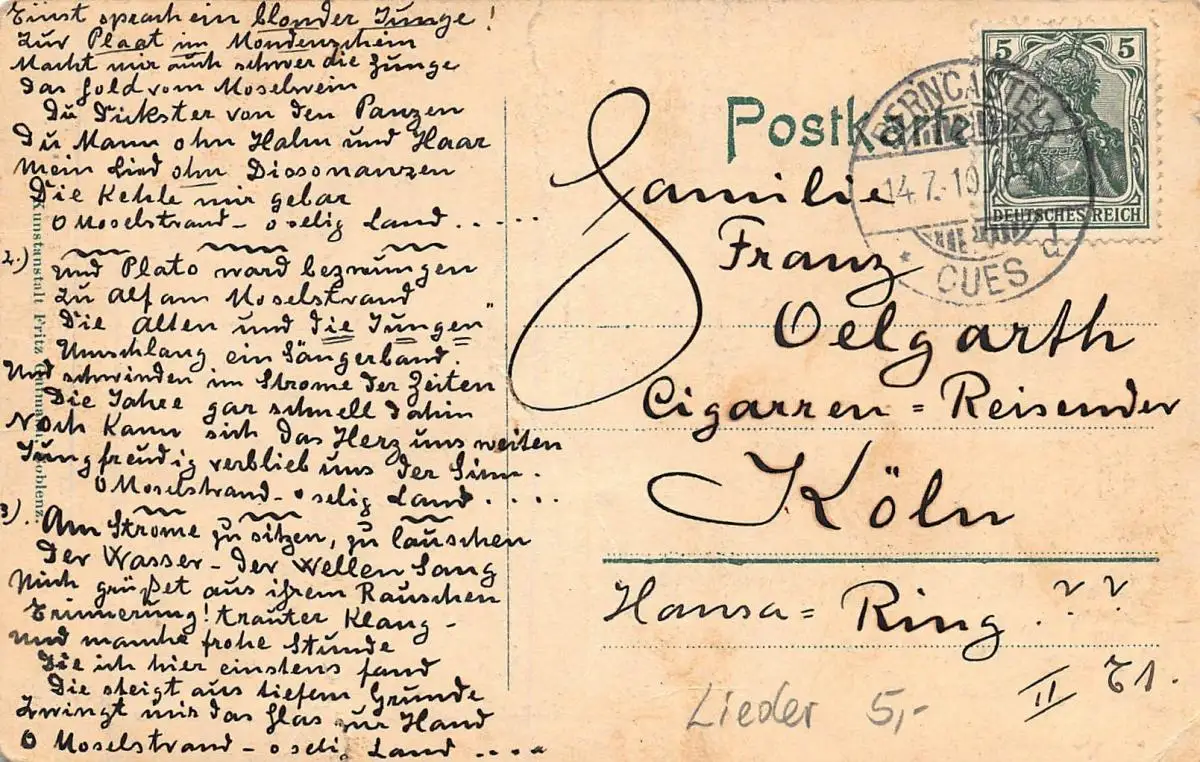 Einst sprach ein blonder Junge!
Zur Plaat im Mondenschein
Macht mir auch schwer die Zunge
Das Gold vom Moselwein
Du Dickster von den Panzen
Du Mann ohn Halm und Haar
Mein Lied ohn Dissonanzen
Die Kehle mir gebar
O Moselstrand - o selig Land . . . . .
2.) Und Plato ward bezwungen
Zu Alf am Moselstrand
Die Alten und die Jungen"
Umschlang ein Sängerband.
Und schwinden im Strome der Zeiten
Die Jahre gar schnell dahin
Noch kann sich das Herz uns weiten
Jungfreudig verblieb uns der Sinn.
O Moselstrand - o selig Land . . . .
3). Am Strome zu sitzen, zu lauschen
Der Wasser - der Wellen Sang
Mich grüßet aus ihrem Rauschen
Erinnerung! trauter Klang -
und manche frohe Stunde
Die ich hier einstens fand
Die steigt aus tiefem Grunde
Zwingt mir das Glas zur Hand
O Moselstrand - o selig Land . . . .
Kunstanstalt Fritz Koblenz.
Postkarte
5 5
DEUTSCHES REICH
BERNCASTEL
14.7.10
CUES d
Familie
Franz
Oelgarth
Cigarren = Reisender
Köln
Hansa = Ring ? ?
II 71.
Lieder 5,-